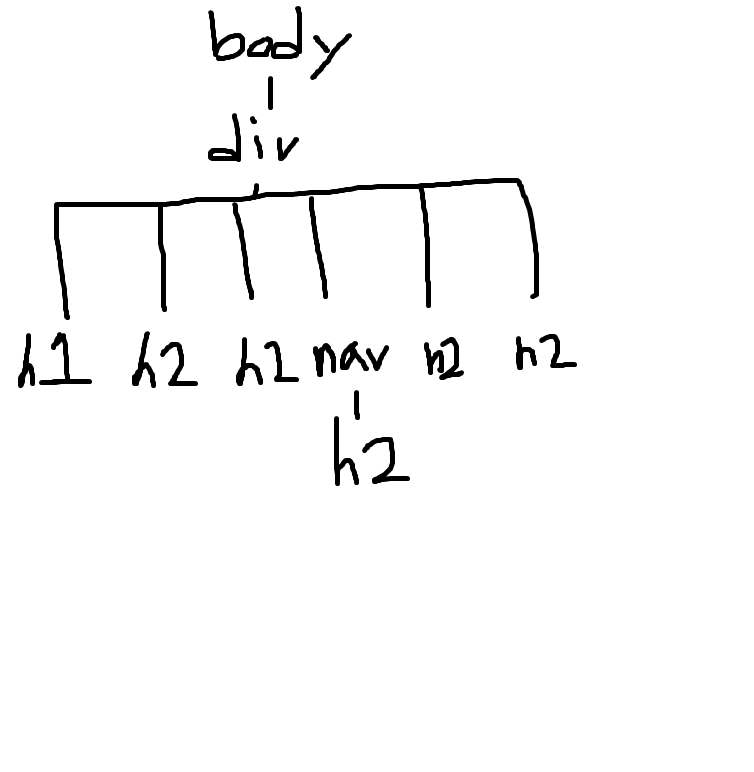 body
div
h1 h2 h2 nav h2 h2
h2